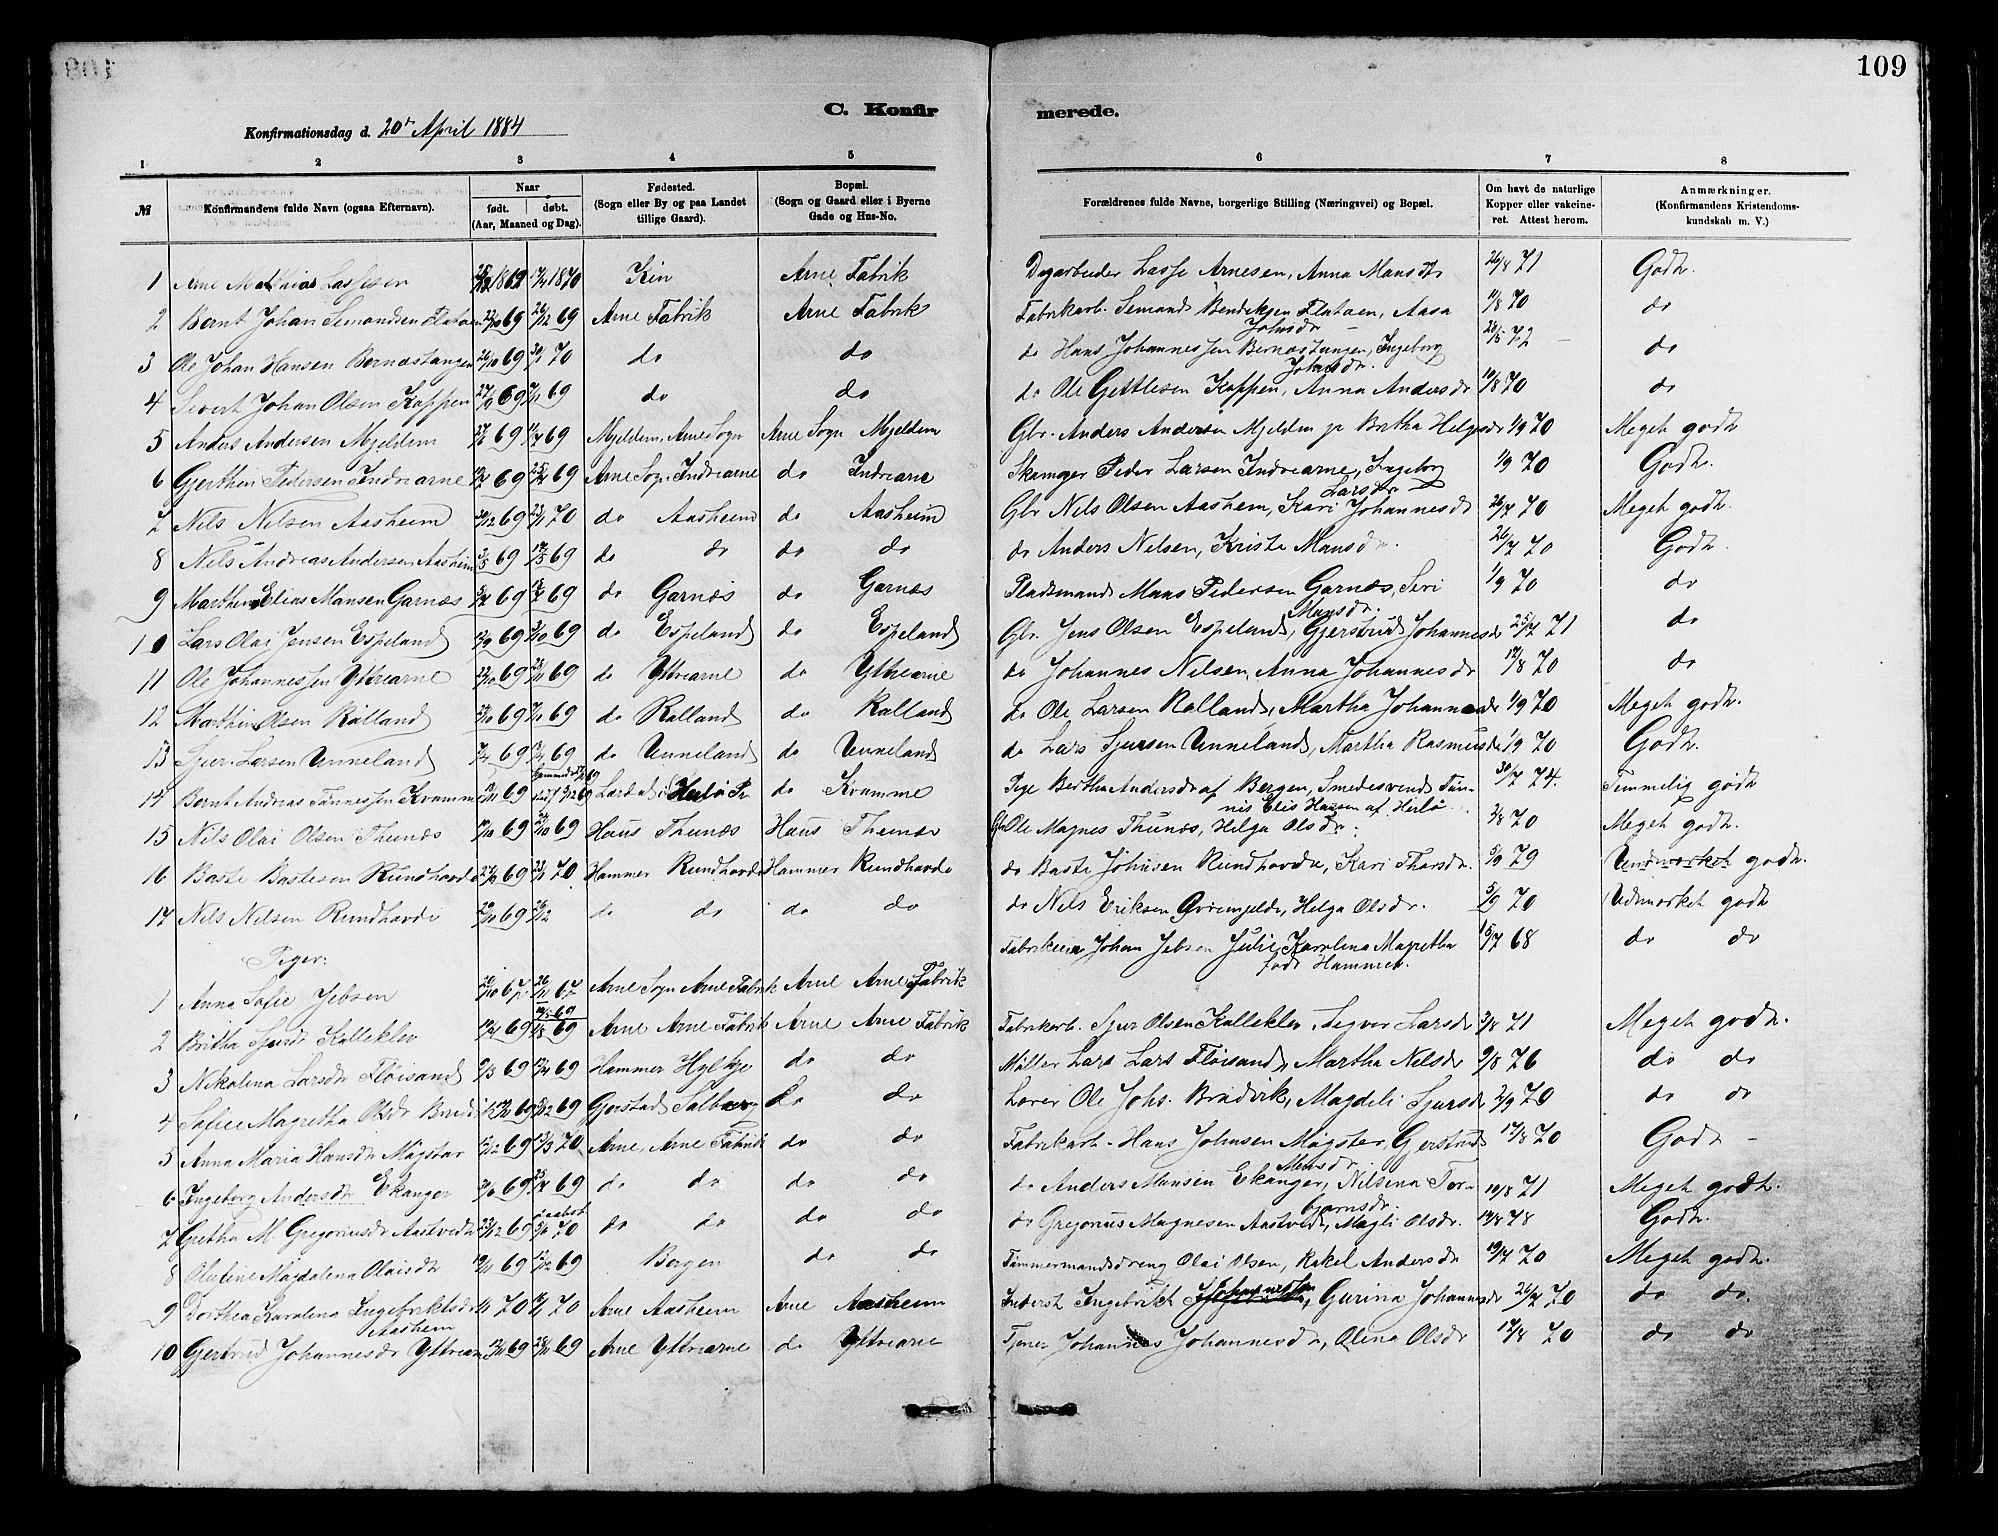 109
C. Konfirmerede.
Konfirmationsdag d. 20de April 1884
1 2 3 4 5 6 7 8
№ Konfirmandens fulde Navn (ogsaa Efternavn). Naar født. døbt. (Aar, Maaned og Dag). Fødested. (Sogn eller By og paa Landet tillige Gaard). Bopæl. (Sogn og Gaard eller i Byerne Gade og Hus-No. Forældrenes fulde Navne, borgerlige Stilling (Næringsvei) og Bopæl. Om havt de naturlige Kopper eller vakcineret. Attest herom. Anmærkninger. (Konfirmandens Kristendomskundskab m. V.)
1 Arne Mathias Lassesen 1869 1870 Kin Arne Fabrik Dagarbeider Lasse Arnesen, Anna Mansdr 26/8 71 Godt.
2 Bernt Johan Semandsen Flataen 22/10 69 26/12 69 Arne Fabrik Arne Fabrik Fabrikarb. Semand Bendiksen Flataen, Aasa Johsdr 11/8 70 do
3 Ole Johan Hansen Bernæstangen 26/10 69 70 do do do Hans Johannessen Bernæstangen, Ingeborg Johsdr. 28/5 72 do
4 Sivert Johan Olsen Koppen 27/9 69 7/11 69 do do do Ole Gjettlesen Koppen, Anna Andersdr 10/8 70 do
5 Anders Andersen Mjeldem 69 69 Mjeldem, Arne Sogn Arne Sogn Mjeldem Gbr. Anders Andersen Mjeldem Britha Helgesdr 1/9 70 Meget godt
6 Gjerthin Pedersen Indrearne 69 25/4 69 Arne Sogn Indrearne do Indrearne Peder Larsen Indrearne, Ingeborg Larsdr 1/9 70 Godt.
7 Nils Nilsen Aasheim 12 69 23/1 70 do Aasheim do Aasheim Gbr Nils Olsen Aasheim, Kari Johannesdr 26/7 70 Meget godt.
8 Nils Andreas Andersen Aasheim 3/5 69 17/5 69 do do do do do Anders Nilsen, Kriste Mansdr. 26/7 70 Godt.
9 Marthin Elias Mansen Garnæs 69 69 do Garnæs do Garnæs Pladsmand Mans Pedersen Garnæs, Seri Mansdr. 1/9 70 do
10 Lars Olai Jensen Espeland 69 3/10 69 do Espeland do Espeland Gbr. Jens Olsen Espeland, Gjertrud Johannesdr 25/7 71 do
11 Ole Johannessen Yttrearne 22/10 69 28/11 69 do Yttrearne do Yttrearne do Johannes Nilsen, Anna Johannesdr 17/8 70 do
12 Marthin Olsen Rølland 69 69 do Rølland do Rølland do Ole Larsen Rølland, Martha Johannesdr 1/9 70 Meget godt.
13 Sjur Larsen Unneland 69 69 do Unneland do Unneland do Lars Sjursen Unneland, Martha Rasmusdr 1/9 70 Godt.
14 Bernt Andreas Tønnessen Kvamme 69 69 Herlø Pr do Kvamme Pige Bertha Andersdr af Bergen, Smedesvend Tønnis Elis Hansen af Herlø 30/7 74. Temmelig godt
15 Nils Olai Olsen Thunæs 10 69 10 69 Haus Thunæs Haus Thunæs Gbr Ole Magnes Thunæs, Helga Olsdr. 3/8 70 Meget godt.
16 Baste Bastesen Rundhovde 69 70 Hammer Rundhovde Hammer Rundhovde do Baste Johnsen Rundhovde, Kari Tharsdr. 5/9 79 Udmærket godt.
17 Nils Nilsen Rundhovde 29/10 69 26/12 do do do do do Nils Eriksen, Helga Olsdr. 5/9 70 Udmærket godt
Piger:
1 Anna Sofie Jebsen 10 67 26/11 67 Arne Sogn Arne Fabrik Arne Arne Fabrik Fabrikeier Johan Jebsen Julie Karolina Magretha født Hammer. 15/7 68 do do
2 Britha Sjursdr Kalleklev 69 69 Arne Arne Fabrik Arne Arne Fabrik Fabrikarb. Sjur Olsen Kalleklev, Segvor Larsdr 3/8 71 Meget godt.
3 Nikolina Larsdr Fløisand 9/3 69 69 Hammer Hylkje do do Møller Lars Lars Fløisand, Martha Nilsdr 9/8 76 do do
4 Sofie Magretha Olsdr 69 12 69 Gjerstad do do Ole Johs. Bradvik, Magdeli Sjursdr 2/9 70 do do
5 Anna Maria Hansdr Møgster 12 69 13/3 70 Arne, Arne Fabrik do do Fabrikarb. Hans Johnsen Møgster, Gjertrud Monsdr. 17/8 70 Godt
6 Ingeborg Andersdr Ekanger 69 69 do do do do do Anders Mansen Ekanger, Nilsina Torbjørnsdr. 10/8 71 Meget godt.
7 Gretha M. Gregoriusdr Aastvedt 12 69 daabst 70 do do do do do Gregorius Magnesen Aastvedt, Magli Olsdr. 14/8 78 Godt.
8 Olufine Magdalena Olaisdr 69 12/12 69 Bergen do do Tømmermandsdreng Olai Olsen, Rakel Andersdr 19/7 70 Meget godt.
9 Dorthea Karolina Ingebriktsdr Aasheim 70 70 Arne Aasheim Arne Aasheim Inderst Ingebrikt Johannessen, Gurina Johannesdr 26/7 70 do do.
10 Gjertrud Johannesdr Yttrearne 69 28/11 69 Arne Yttrearne do Yttrearne Tjener Johannes Johannesdr, Olina Olsdr 17/8 70 do do